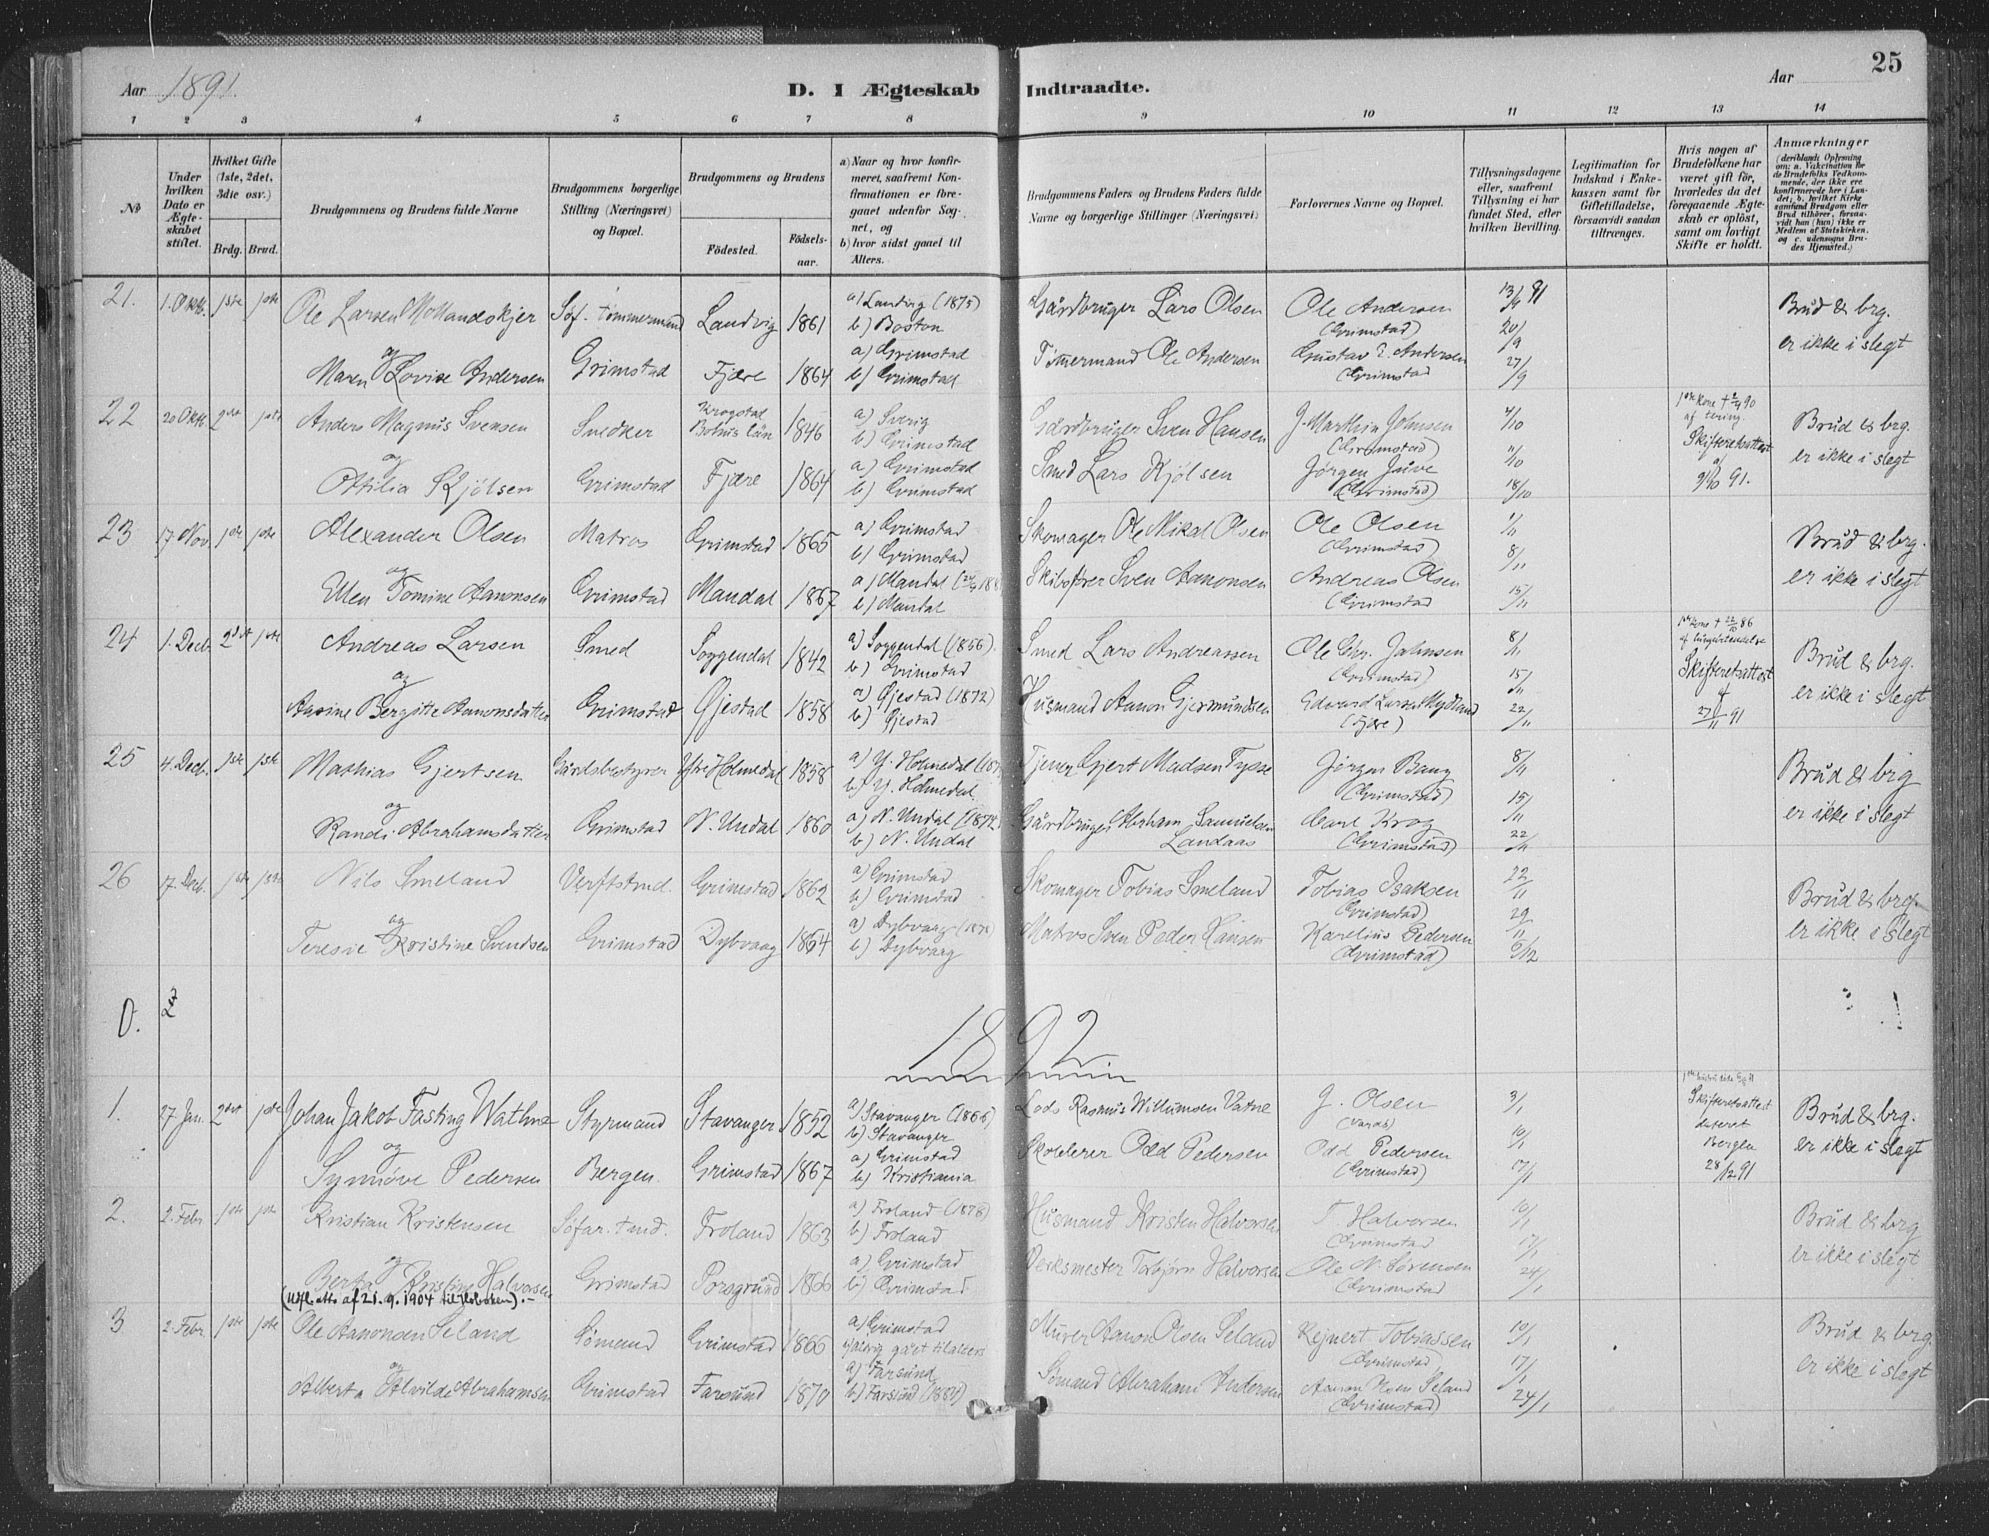 Aar 1891.
D. I Ægteskab Indtraadte.
Aar
25
1 2 3 4 5 6 7 8 9 10 11 12 13 14
No
Under hvilken Dato er Ægteskabet stiftet.
Hvilket Gifte (1ste, 2det, 3die osv.)
Brdg. Brud.
Brudgommens og Brudens fulde Navne
Brudgommens borgerlige Stilling (Næringsvei) og Bopæl.
Brudgommens og Brudens
Fødested.
Fødselsaar.
a) Naar og hvor konfirmeret, saafremt Konfirmationen er foregaaet udenfor Sognet, og
b) hvor sidst gaaet til Alters.
Brudgommens Faders og Brudens Faders fulde Navne og borgerlige Stillinger (Næringsvei)
Forlovernes Navne og Bopæl.
Tillysningsdagene eller, saafremt Tillysning ei har fundet Sted, efter hvilken Bevilling.
Legitimation for Indskud i Enkekassen samt for Giftetilladelse, forsaavidt saadan tiltrænges.
Hvis nogen af Brudefolkene har været gift før, hvorledes da det foregaaende Ægteskab er opløst, samt om lovligt Skifte er holdt.
Anmærkninger
(deriblandt Oplysning om: a. Vaccination for de Brudefolks Vedkommende, der ikke ere konfirmerede her i Landet; b. hvilket Kirkesamfund Brudgom eller Brud tilhører, forsaavidt han (hun) ikke er Medlem af Statskirken, og c. udensogns Brudes Hjemsted.)
21. 1. Oktb. 1ste 1ste Ole Larsen Søf. tømmermand Landvig 1861 a) Landvig (1875) Gårdbruger Lars Olsen Ole Andersen 13/9 91 Brud & brg.
og b) Boston (Grimstad) 20/9 er ikke i slegt
Maren Lovise Andersen Grimstad Fjære 1864 a) Grimstad Tømmermand Ole Andersen Gustav E. Andersen 27/9
b) Grimstad (Grimstad)
22 20 Oktb. 2det 1ste Anders Magnus Svensen Snedker Krogstad Bohus län 1846 a) Sverig Gårdbruger Sven Hansen J. Marthin Johnsen 4/10 1ste kone + 90 af tæring. Brud & brg.
og b) Grimstad (Grimstad) 11/10 Skifteretsattest er ikke i slegt
Ottilia Kjølsen Grimstad Fjære 1864 a) Grimstad Smed Lars Kjølsen Jørgen Juve 18/10 9/10 91.
b) Grimstad (Grimstad)
23 17 Nov 1ste 1ste Alexander Olsen Matros Grimstad 1865 a) Grimstad Skomager Ole Mikal Olsen Ole Olsen 1/11 Brud & brg.
og b) Grimstad (Grimstad) 8/11 er ikke i slegt
Ellen Tomine Aanonsen Grimstad Mandal 1867 a) Mandal Skibsfører Sven Aanonsen Andreas Olsen 15/11
b) Mandal (Grimstad
24 1. Decb. 2det 1ste Andreas Larsen Smed Soggendal 1842 a) Soggendal (1856). Smed Lars Andreassen Ole Chr. Johnsen 8/11 1ste kone + 22/10 86 Brud & brg.
og b) Grimstad (Grimstad) 15/11 Skifteretsattest er ikke i slegt
Aasine Bergitte Aanonsdatter Grimstad Øjestad 1858 a) Øjestad (1872) Husmand Aanon Gjermundsen Edvard Larsen Mydland 22/11 af 27/11 91
b) Øjestad (Fjære)
25 4. Decb. 1ste 1ste Mathias Gjertsen Gårdsbestyrer Ytre Holmedal 1858 a) Y. Holmedal Tjener Gjert Madsen Tysse Jørgen Bang 8/11 Brud & brg
og b) Y. Holmedal. (Grimstad) 15/11 er ikke i slegt
Randi Abrahamsdatter Grimstad N. Undal 1860 a) N. Undal (1874) Gårdbruger Abraham Samuelsen Landaas Carl Krog 22/11
b) N. Undal (Grimstad)
26 17. Decb. 1ste 1ste Nils Smeland Verftstmd. Grimstad 1862 a) Grimstad Skomager Tobias Smeland Tobias Isaksen 22/11 Brud & brg.
og b) Grimstad (Grimstad) 29/11 er ikke i slegt
Teresie Kristine Svendsen Grimstad Dybvaag 1864 a) Dybvaag Matros Sven Peder Hansen Karelius Pedersen 6/12
b) Dybvaag (Grimstad)
0.
1892
1. 27 Jan. 2det 1ste Johan Jakob Fasting Wathne Styrmand Stavanger 1852 a) Stavanger (1866) Lods Rasmus Willumsen Vatne G. Olsen 3/1 Skifteretsattest Brud & brg.
og b) Stavanger 10/1 dateret Bergen er ikke i slegt
Synnöve Pedersen Bergen. Grimstad 1867 a) Grimstad Skolelærer Odd Pedersen Odd Pedersen 17/1 28/12 91
b) Kristiania (Grimstad)
2. 2. Febr 1ste 1ste Kristian Kristensen Søfar. tmd. Froland 1863 a) Froland (1878) Husmand Kristen Halvorsen T. Halvorsen 10/1 Brud & brg
og b) Froland (Grimstad 17/1 er ikke i slegt
Berta Kristine Halvorsen Grimstad Porsgrund 1866 a) Grimstad Verksmester Torbjørn Halvorsen Ole N. Sørensen 24/1
(Utfl. atts af 21.9.1904 til Hoboken).- b) Grimstad (Grimstad
3 2. Febr. 1ste 1ste Ole Aanonsen Seland Sømand Grimstad 1866 a) Grimstad Murer Aanon Olsen Seland Rejnert Tobiassen 10/1 Brud & brg.
og b) aldrig gået til alters (Grimstad) 17/1 er ikke i slegt
Alberta Alvilde Abrahamsen Grimstad Farsund 1870 a) Farsund Sømand Abraham Andersen Aanon Olsen Seland 24/1
b) Farsund (Grimstad)